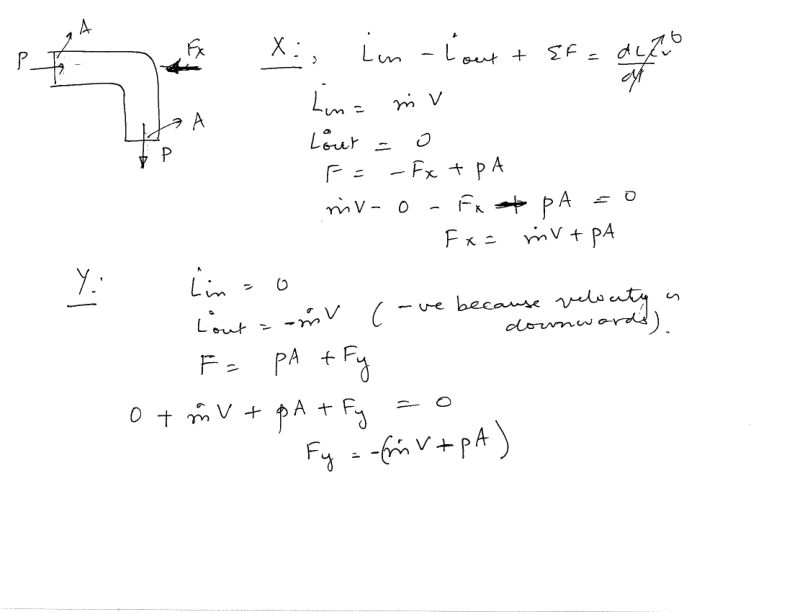 A
P
Fx
A
P
X:, L̇in - L̇out + ΣF = dLcv/dt 0
L̇in = ṁ V
L̇out = 0
F = -Fx + pA
ṁV - 0 - Fx + pA = 0
Fx = ṁV + pA
Y:
L̇in = 0
L̇out = -ṁV (-ve because velocity is
downwards).
F = pA + Fy
0 + ṁV + pA + Fy = 0
Fy = -(ṁV + pA)